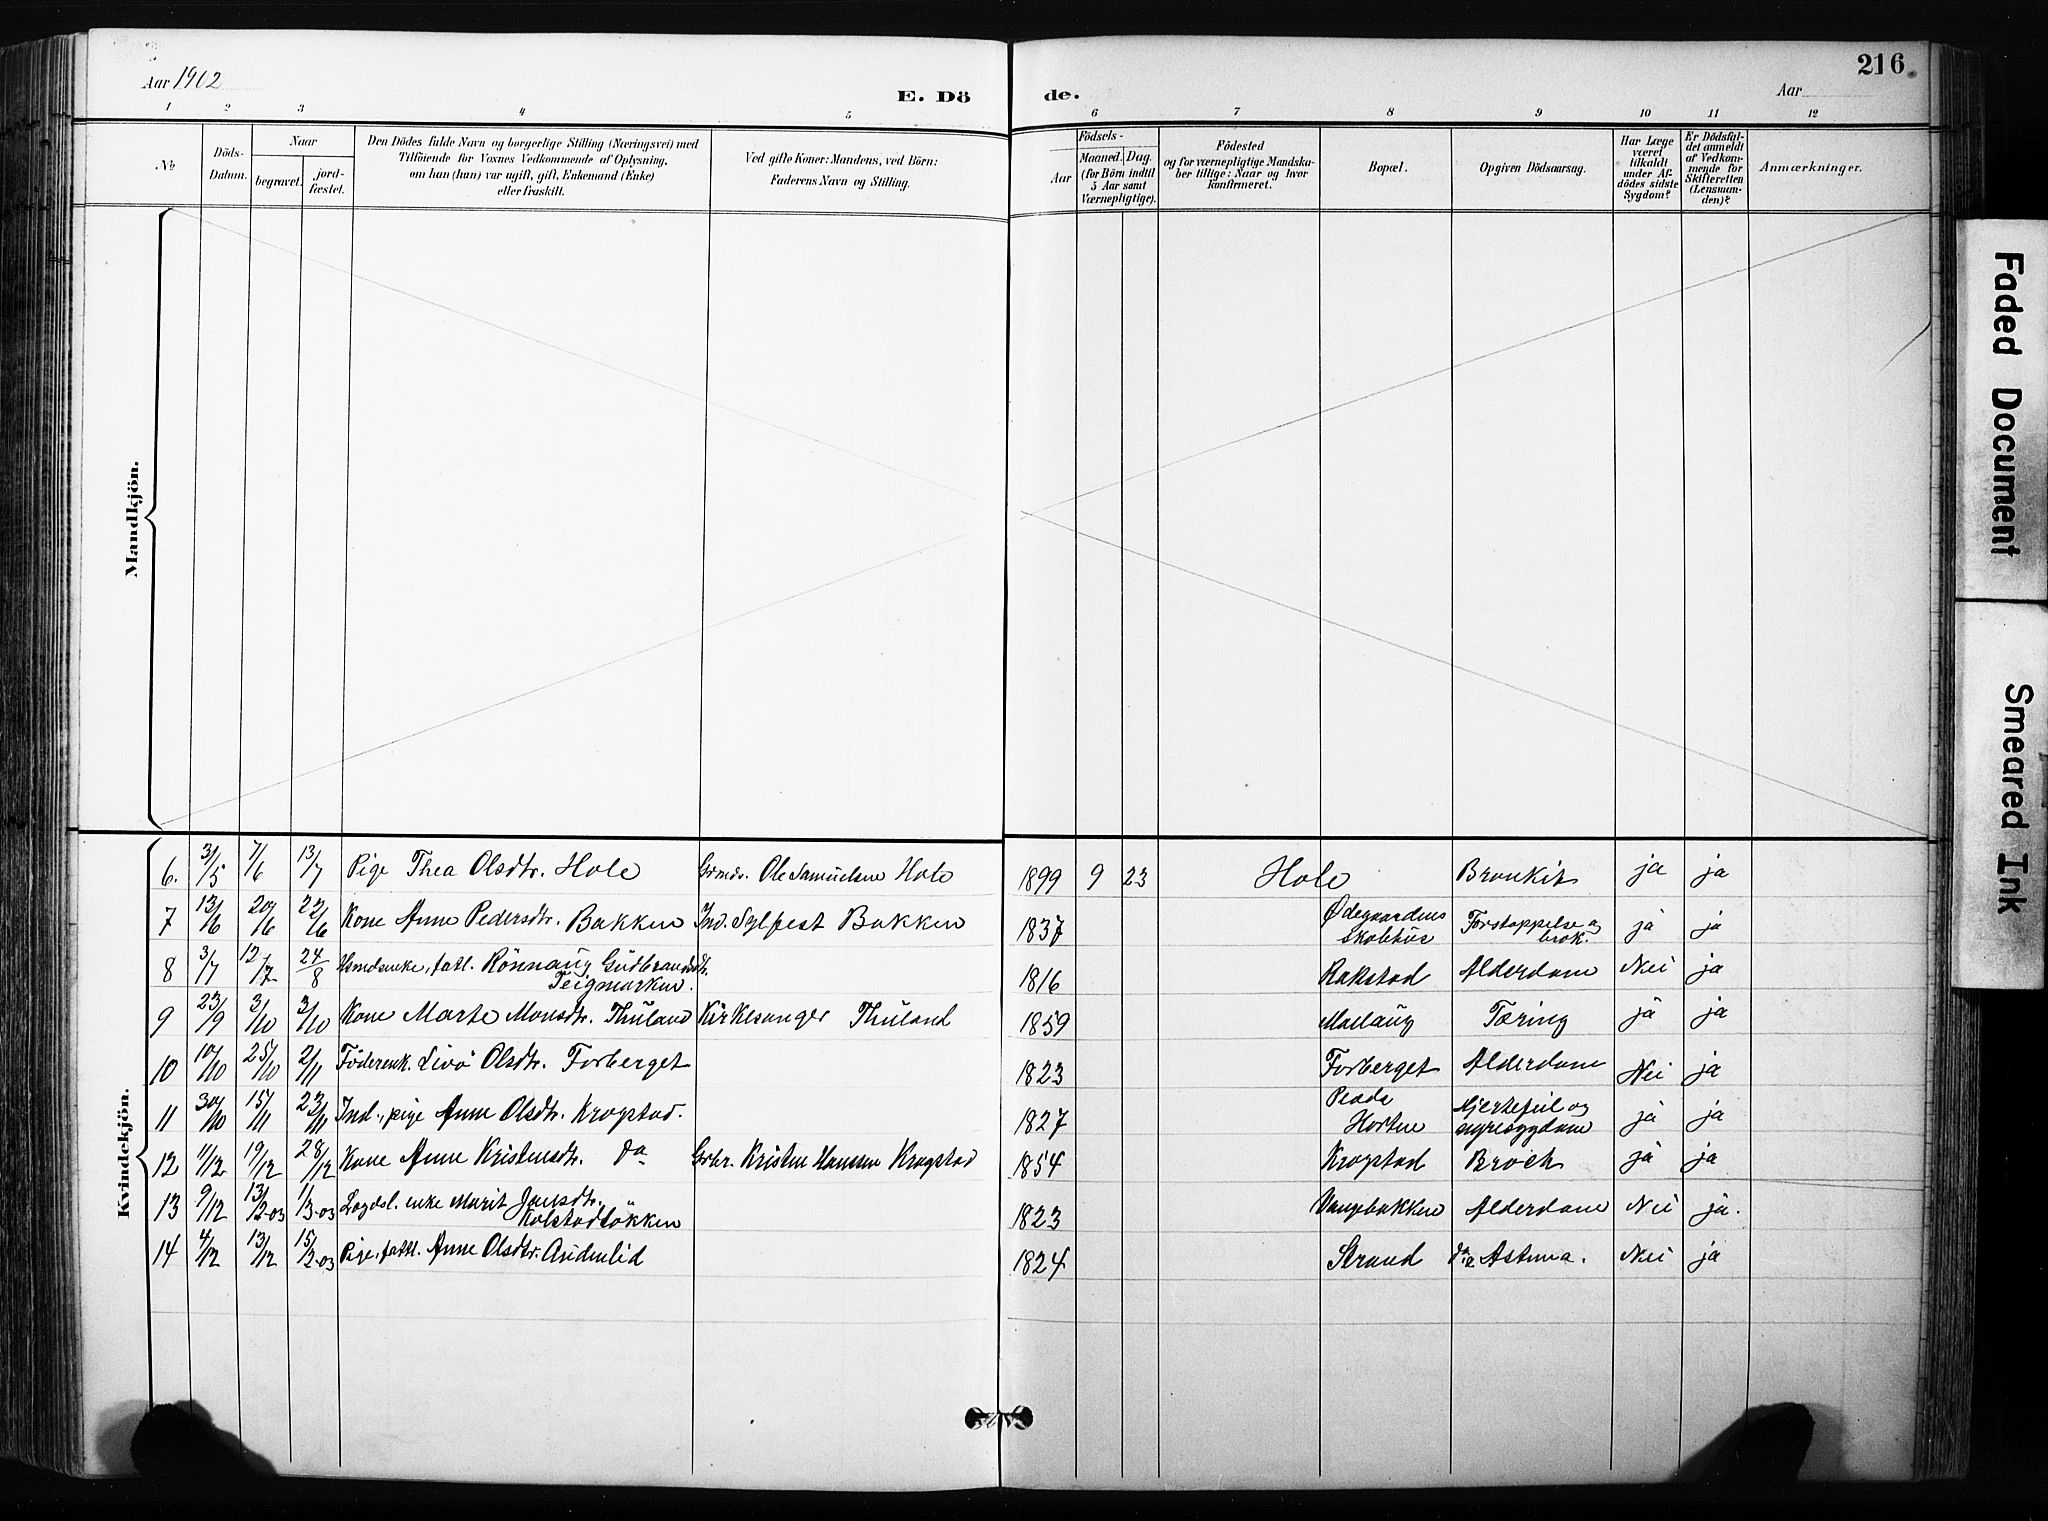 216
Aar 1902
E. Dö
de.
Aar
1 2 3 4 5 6 7 8 9 10 11 12
No
Döds-
Datum.
Naar
begravet.
jord-
fæstet.
Den Dödes fulde Navn og borgerlige Stilling (Næringsvei) med
Tilföiende for Voxnes Vedkommende af Oplysning,
om han (hun) var ugift, gift, Enkemand (Enke)
eller fraskilt.
Ved gifte Koner: Mandens, ved Börn:
Faderens Navn og Stilling.
Födsels-
Aar
Maaned.
Dag.
(for Börn indtil
5 Aar samt
Værnepligtige).
Födested
og for værnepligtige Mandska-
ber tillige: Naar og hvor
konfirmeret.
Bopæl.
Opgiven Dödsaarsag.
Har Læge
været
tilkaldt
under Af-
dödes sidste
Sygdom?
Er Dödsfal-
det anmeldt
af Vedkom-
mende for
Skifteretten
(Lensman-
den)?
Anmærkninger.
Mandkjön.
Kvindekjön.
6. 31/5 7/6 13/7 Pige Thea Olsdtr. Hole Grmds. Ole Samuelsen Hole 1899 9 23 Hole Bronkit ja ja
7 13/6 20/6 22/6 Kone Anne Pedersdtr. Bakken Ind. Sylfest Bakken 1837 Ødegaardens
skolehus Forstoppelse og
brok. ja ja
8 3/7 12/7 24/8 Hsmdsenke, fatt. Rönnaug Gudbrandsdtr.
Teigmarken. 1816 Rakstad Alderdom Nei ja
9 23/9 3/10 3/10 Kone Marte Monsdtr. Thuland Kirkesanger Thuland 1859 Mælaug Tæring ja ja
10 10/10 25/10 2/11 Föderenk. Livö Olsdtr. Forberget 1823 Forberget Alderdom Nei ja
11 30/10 15/11 23/11 Ind., pige Anne Olsdtr. Krogstad. 1827 Hjertefeil og
nyresygdom ja ja
12 11/12 19/12 28/12 Kone Anne Kristensdtr. do Grbr. Kristen Hanssen Krogstad 1854 Krogstad Broch ja ja
13 9/12 13/2-03 1/3-03 Lægdsl. enke Marit Jensdtr.
Kolstadlökken 1823 Vangebakken Alderdom Nei ja.
14 4/12 13/12 15/2-03 Pige, fattl. Anne Olsdtr. Audenlid 1824 Strand do Astma. Nei ja
Faded Document
Smeared Ink